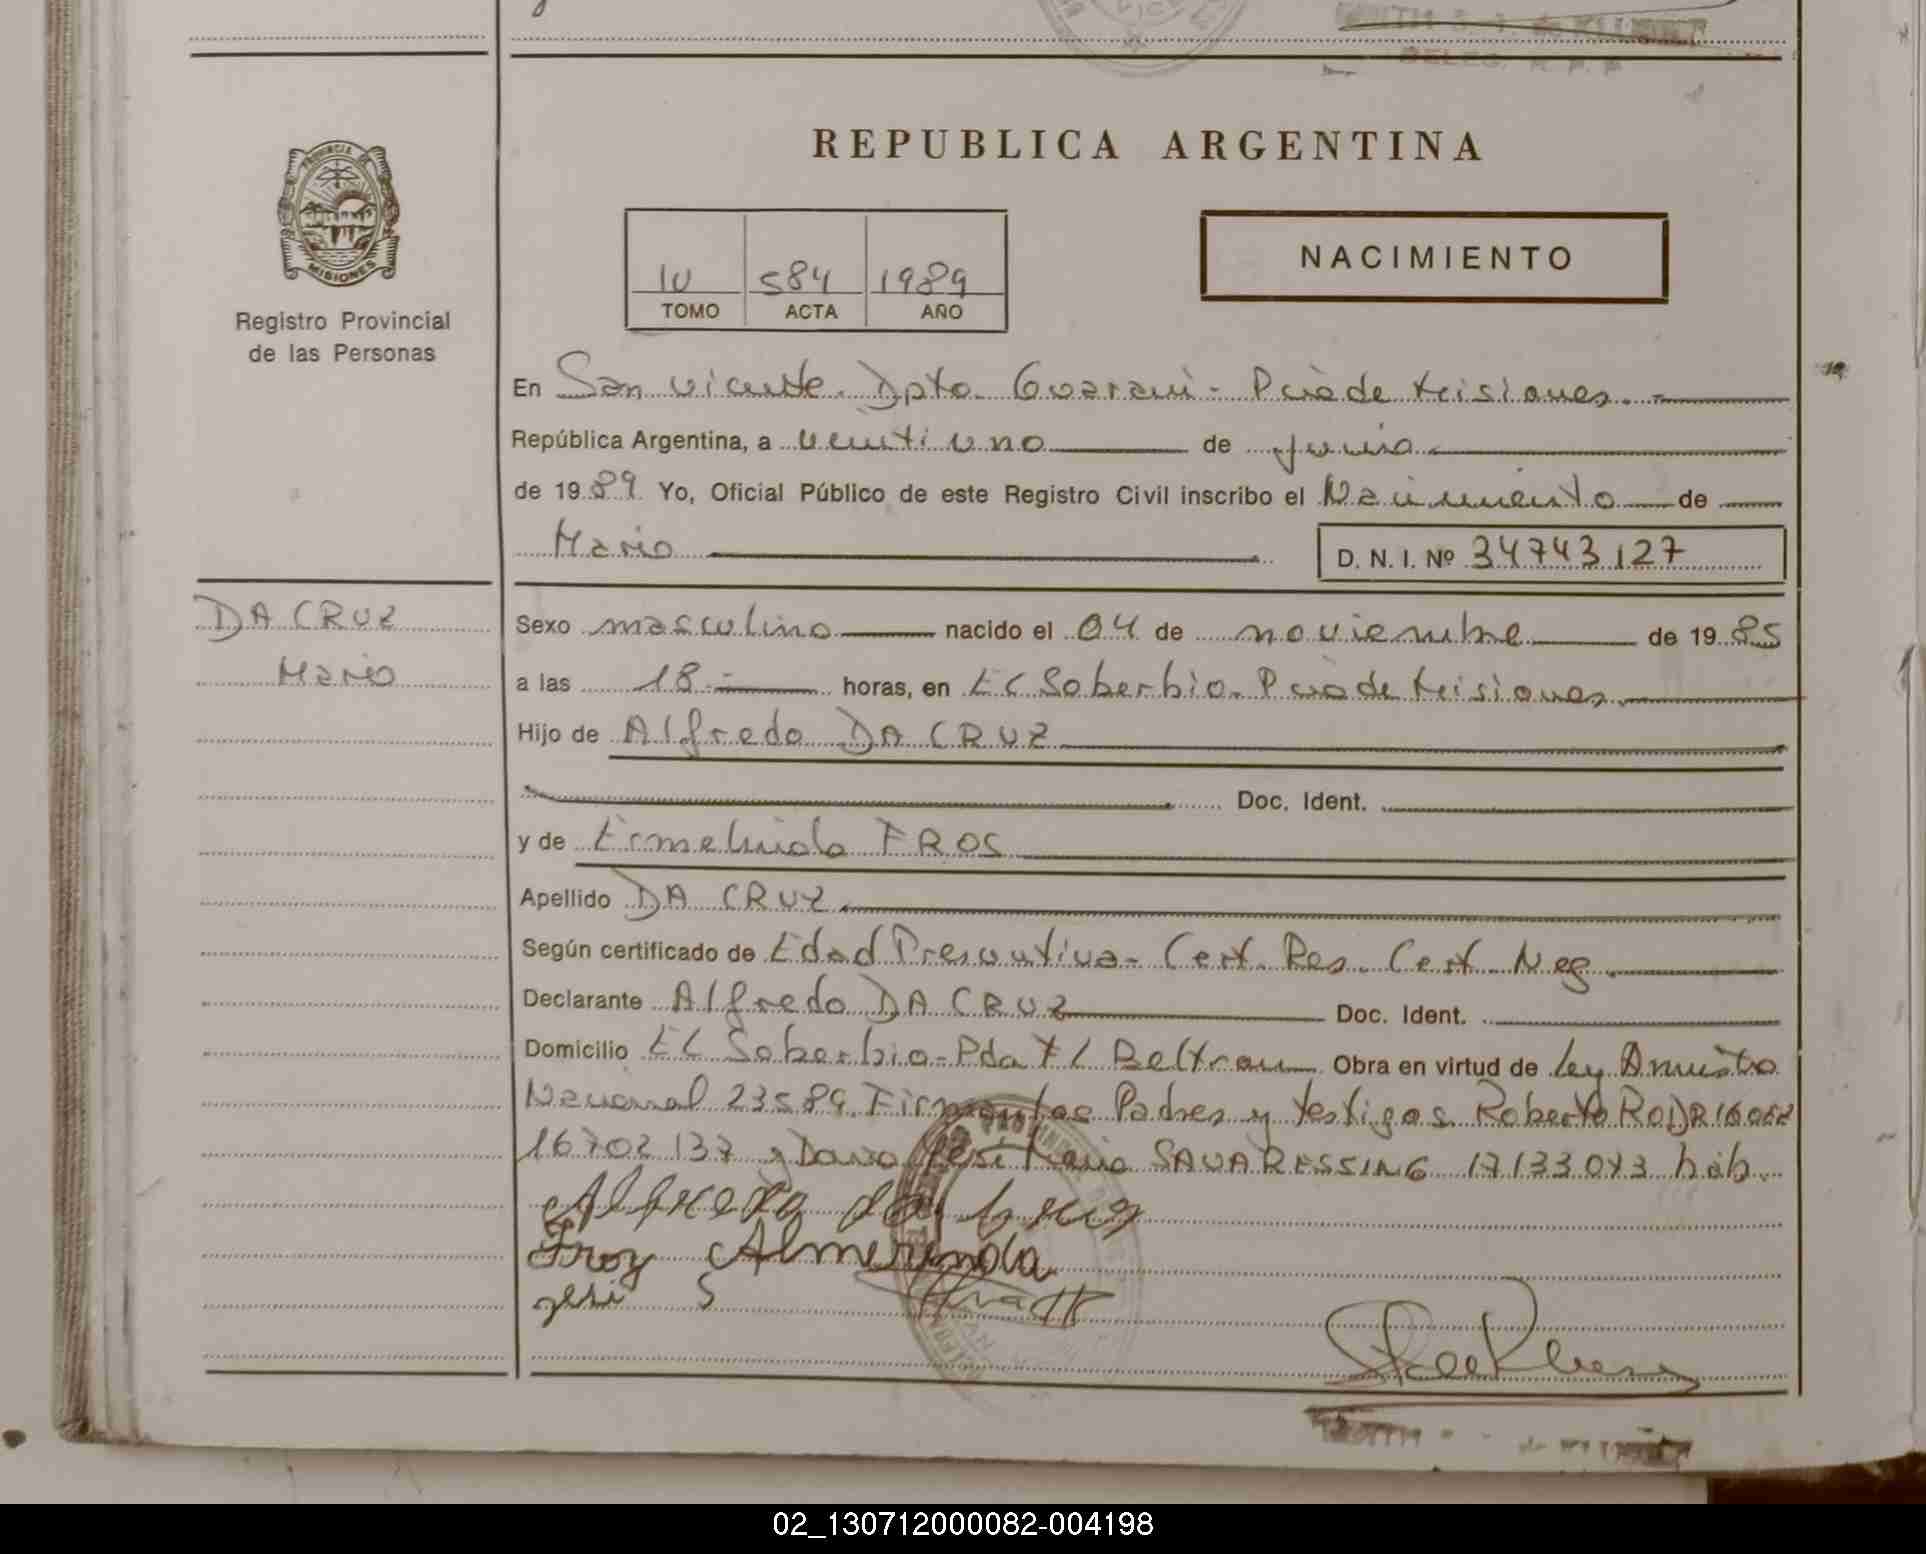 REPUBLICA ARGENTINA
PROVINCIA DE
MISIONES
Registro Provincial
de las Personas
IV 584 1989
TOMO ACTA AÑO
NACIMIENTO
En San Vicente Dpto. Guaraní - Pcia de Misiones.
República Argentina, a veintiuno de junio
de 1989 Yo, Oficial Público de este Registro Civil inscribo el Nacimiento de
Mario D. N. I. Nº 34743127
DA CRUZ
Mario
Sexo masculino nacido el 04 de noviembre de 1985
a las 18 horas, en El Soberbio - Pcia de Misiones
Hijo de Alfredo DA CRUZ
Doc. Ident.
y de Ermelinda FROS
Apellido DA CRUZ
Según certificado de Edad Presuntiva - Cert. Res. Cert. Neg.
Declarante Alfredo DA CRUZ Doc. Ident.
Domicilio El Soberbio - Pda El Beltran Obra en virtud de Ley Amnistia
Nacional 23589. Firman Padres y testigos Roberto
16702137 y José SAVARESSING 17133073 hab.
Alfredo da Cruz
Froz Almerinda
02_130712000082-004198